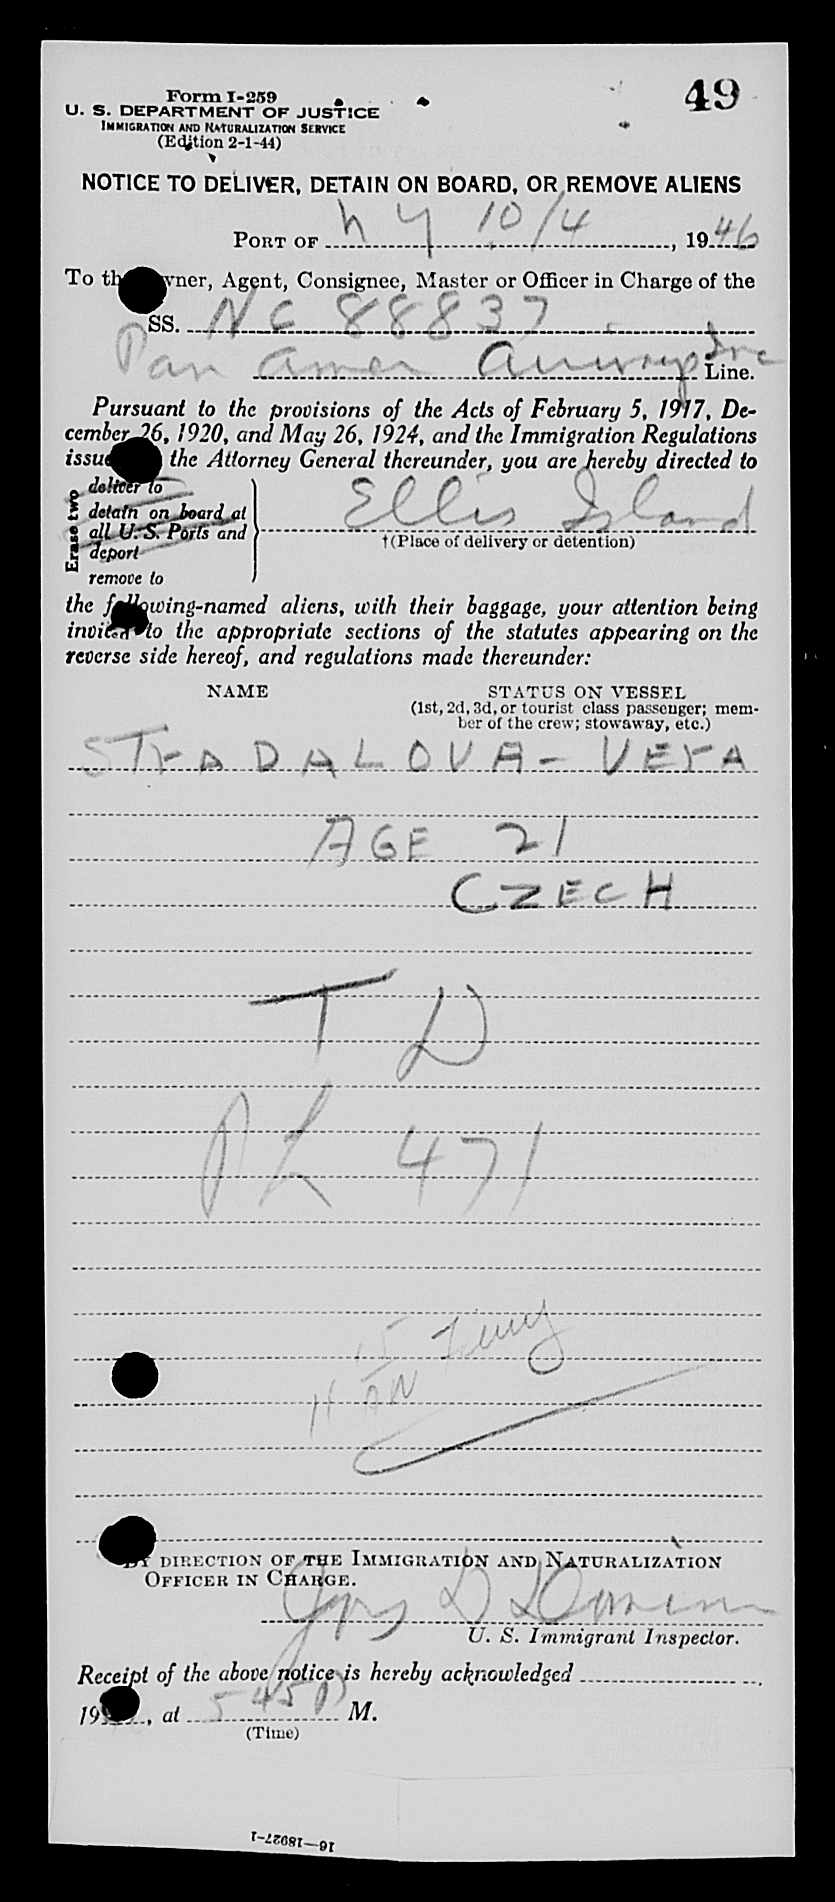 Form I-259
U. S. DEPARTMENT OF JUSTICE
IMMIGRATION AND NATURALIZATION SERVICE
(Edition 2-1-44)
49
NOTICE TO DELIVER, DETAIN ON BOARD, OR REMOVE ALIENS
PORT OF N Y 10/4, 1946
To th wner, Agent, Consignee, Master or Officer in Charge of the
SS. NC 88837
Pan Amer Airways Inc Line.
Pursuant to the provisions of the Acts of February 5, 1917, De-
cember 26, 1920, and May 26, 1924, and the Immigration Regulations
issu the Attorney General thereunder, you are hereby directed to
Erase two
deliver to
detain on board at
all U. S. Ports and
deport
remove to
Ellis Island
†(Place of delivery or detention)
the following-named aliens, with their baggage, your attention being
invited to the appropriate sections of the statutes appearing on the
reverse side hereof, and regulations made thereunder:
NAME
STATUS ON VESSEL
(1st, 2d, 3d, or tourist class passenger; mem-
ber of the crew; stowaway, etc.)
STrADALOVA - VErA
AGE 21
CZECH
T D
PL 471
BY DIRECTION OF THE IMMIGRATION AND NATURALIZATION
OFFICER IN CHARGE.
U. S. Immigrant Inspector.
Receipt of the above notice is hereby acknowledged
19 , at 545 P M.
(Time)
16—18927-1